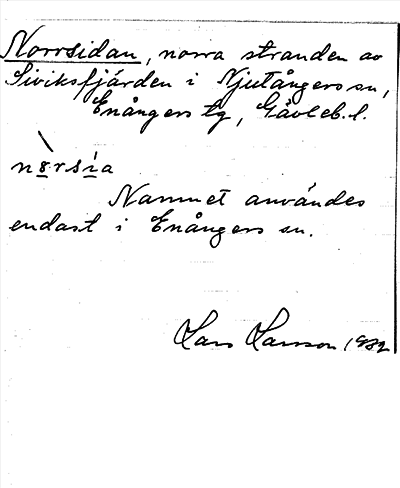 Norrsidan, norra stranden av
Siviksfjärden i Njutångers sn,
Enångers tg, Gävleb. l.
n8rsia
Namnet användes
endast i Enångers sn.
Lars Larsson 1932